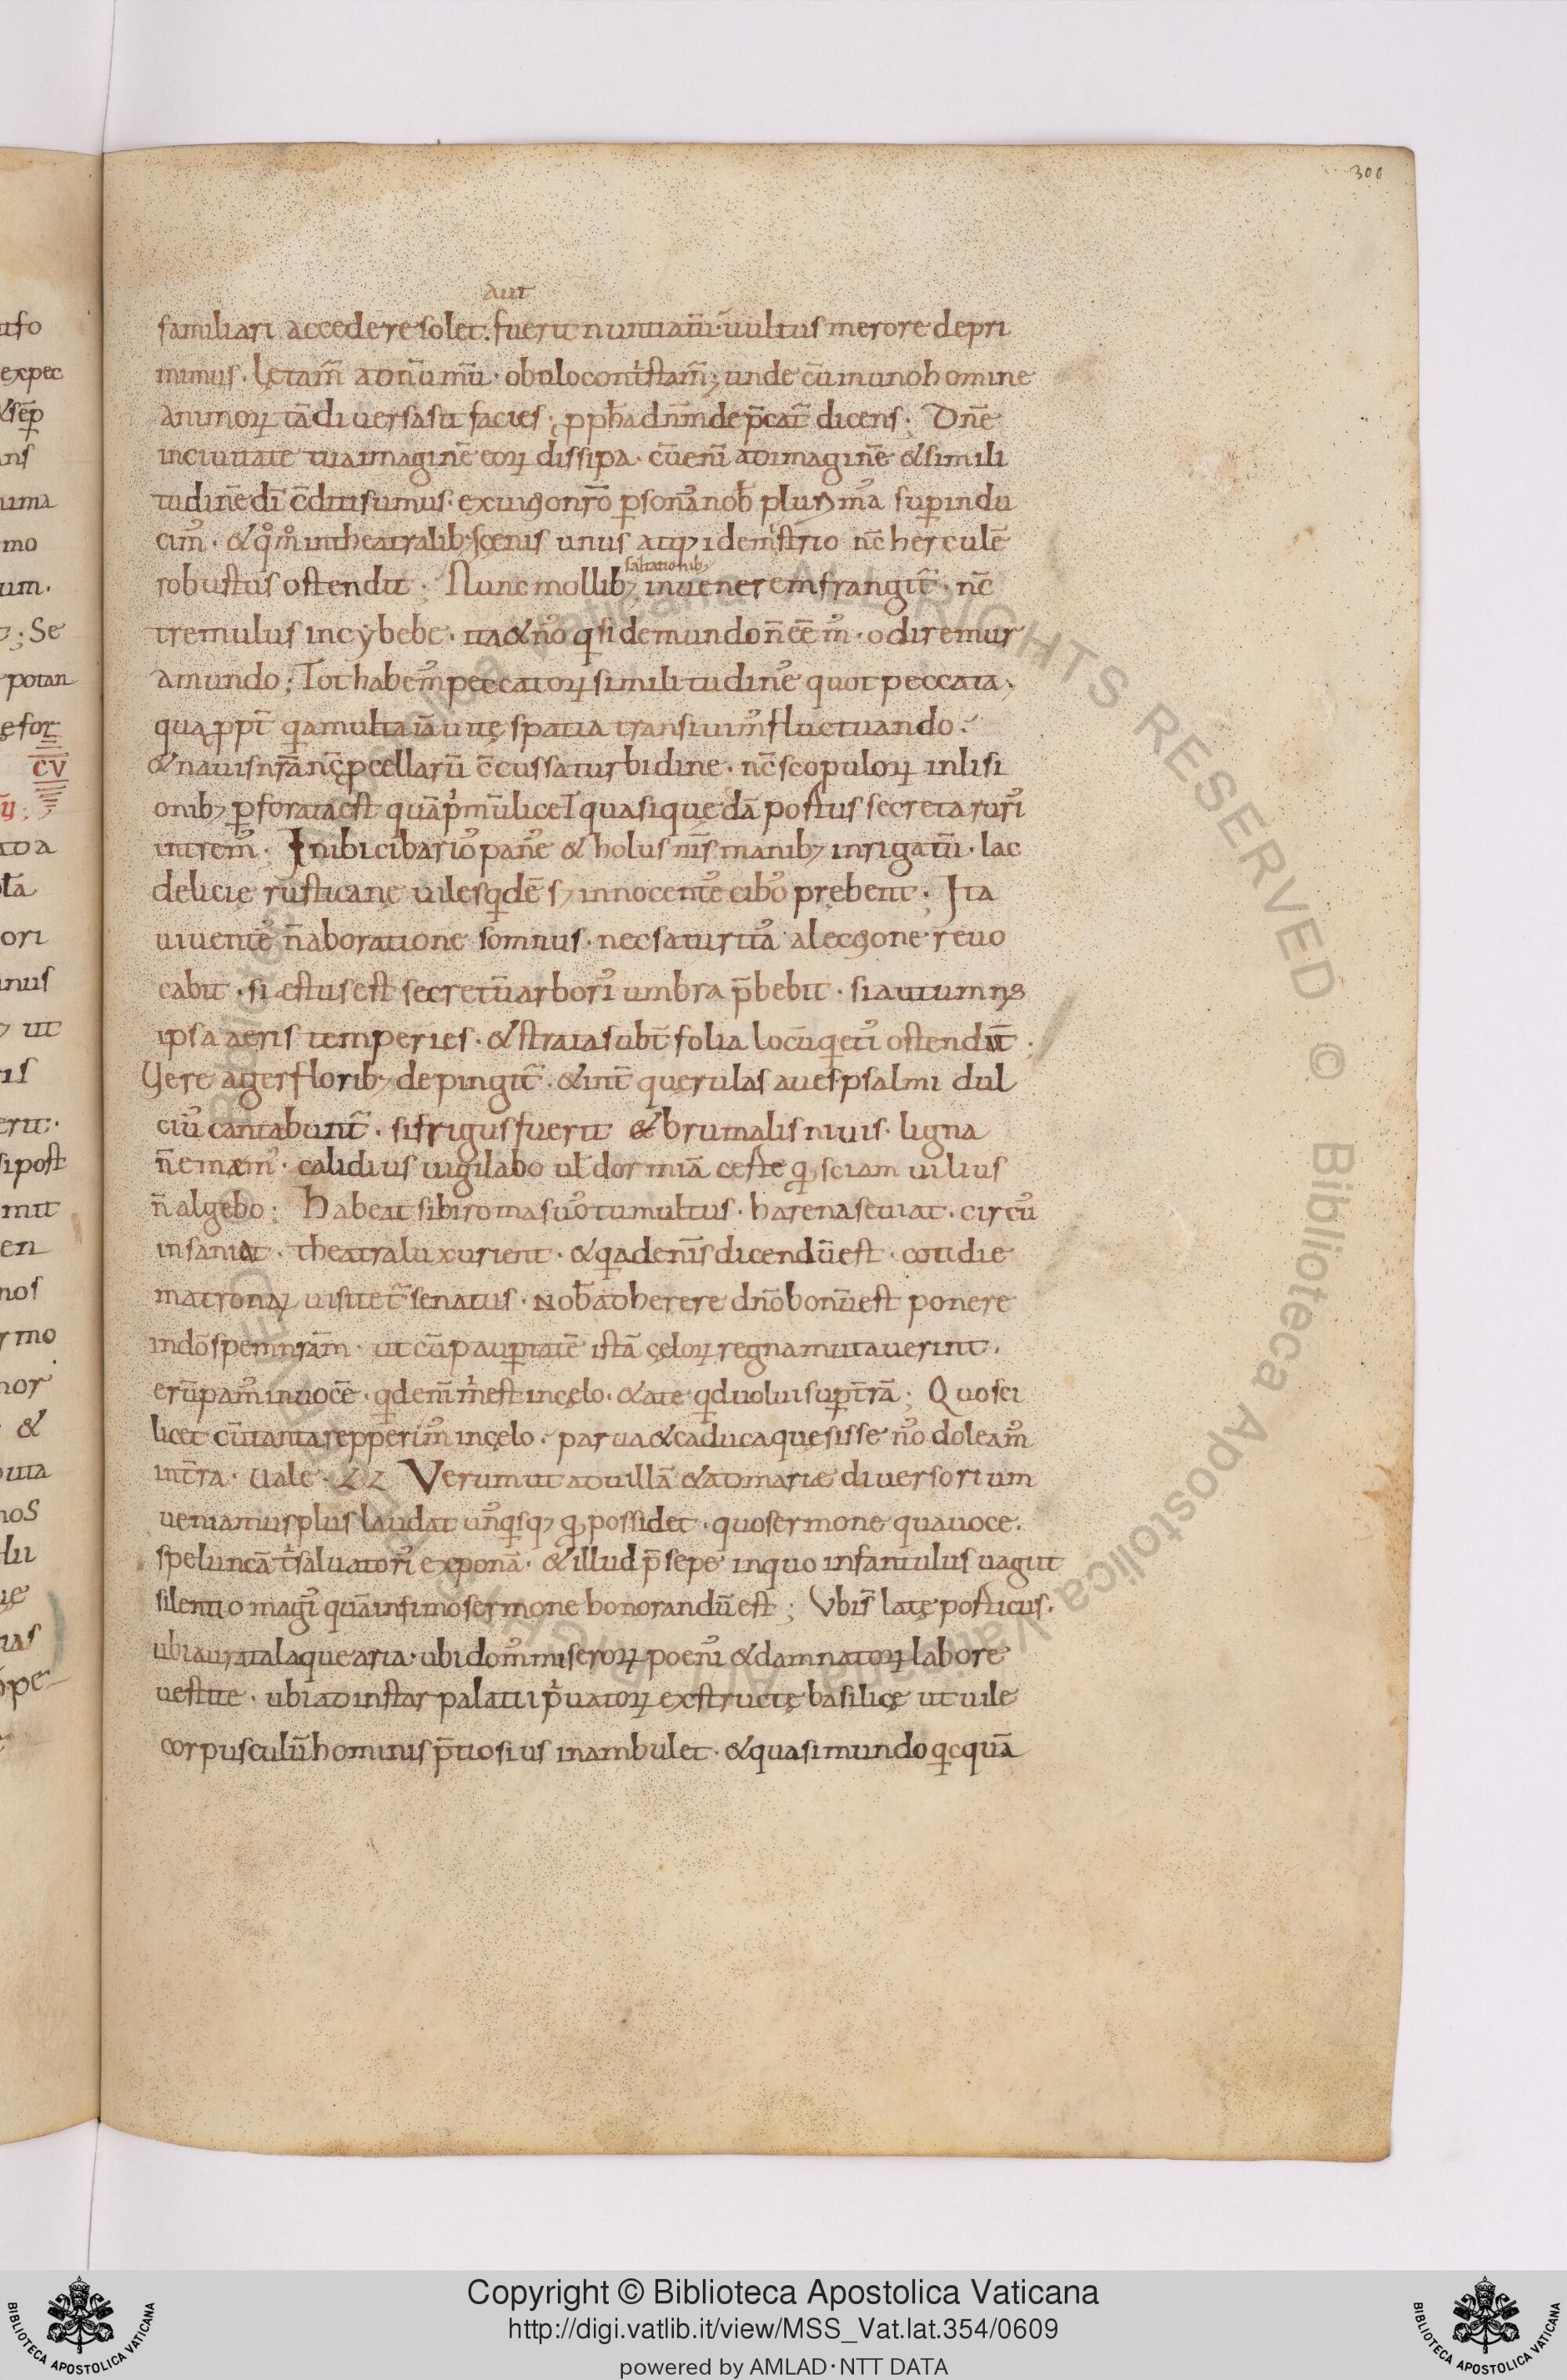 300
aut
familiari accedere solet. fuerit nuntiatū. uultus merore depri
mimus. lętam̄ ad nūmū. obulo contͥstam̄; unde cū in uno homine
animoꝝ tā diuersa sit facies; ꝓpħa dn̄m dep̄cat̄ dicens; Dn̄e
in ciuitate tua imaginē eoꝝ dissipa. cū eni᷒ ad imaginē & simili
tudinē dī c̄diti sumus. ex uitio nr̄o ꝑsonas nob̄ plurimas suꝑindu
cim᷒. & qͦm̊ in theatralib; scęnis unus atq; idem histrio nc̄ herculē
saltationib;
robustus ostendit; Nunc mollib; in uenerem frangit̄. nc̄
tremulus in cybebe. ita & nos q̇ si de mundo n̄ eēm᷒. odiremur
a mundo; Tot habem᷒ peccatoꝝ similitudines quot peccata.
quaꝓpt̄ q̇a multa iā uitę spatia transiuim᷒ fluctuando.
& nauis nr̄a nc̄ ꝓcellarū c̄cussa turbidine. nc̄ scopuloꝝ inlisi
onib; ꝑforata est quā pͥmū licet quasi quędā portus secreta ruris
intrem᷒. Inibi cibarios panes & holus nr̄is manib; inrigatū. lac
delicię rusticanę uiles q̇dē s; innocentes cibos prębent; Ita
uiuentes n̄ ab oratione somnus. nec saturitas a lectione reuo
cabit. si æstus est secretū arboris umbra p̄bebit. si autumnus
ipsa aeris temperies. & strata subt̄ folia locū q̇etis ostendit;
Uere ager florib; depingit̄. & int̄ querulas aues psalmi dul
cius cantabunt̄. si frigus fuerit & brumalis niuis. ligna
n̄ emæm᷒. calidius uigilabo uł dormiā certe qḋ sciam uilius
n̄ algebo; Habeat sibi roma suos tumultus. harena seuiat. circus
insaniat. theatra luxurient. & q̇a de nr̄is dicendū est. cotidie
matronaꝝ uisitet̄ senatus. nob̄ adherere dn̄o bonū est ponere
in dō spem nr̄am. ut cū pauꝑtatē istā cęloꝝ regna mutauerint.
erūpam᷒ in uocē. q̇d eni᷒ mͥ est in cęlo. & a te q̇d uolui suꝑ t̄rā; Quo sci
licet cū tanta repperim᷒ in cęlo. parua & caduca quęsisse nos doleam᷒
in t̄ra. Uale. Verum ut ad uillā & ad mariæ diuersorium
ueniamus plus laudat unusq̇sq; qḋ possidet. quo sermone qua uoce.
speluncā tͥ saluatoris exponā. & illud p̄sepe in quo infantulus uagiit
silentio magis quā infimo sermone honorandū est; Ubi s̄ latę porticus.
ubi aurata laquearia. ubi dom᷒ miseroꝝ poenis & damnatoꝝ labore
uestite. ubi ad instar palatii pͥuatoꝝ exstructę basilicę ut uile
corpusculū hominis p̄tiosius inambulet. & quasi mundo q̇cquā
Copyright © Biblioteca Apostolica Vaticana
http://digi.vatlib.it/view/MSS_Vat.lat.354/0609
powered by AMLAD·NTT DATA